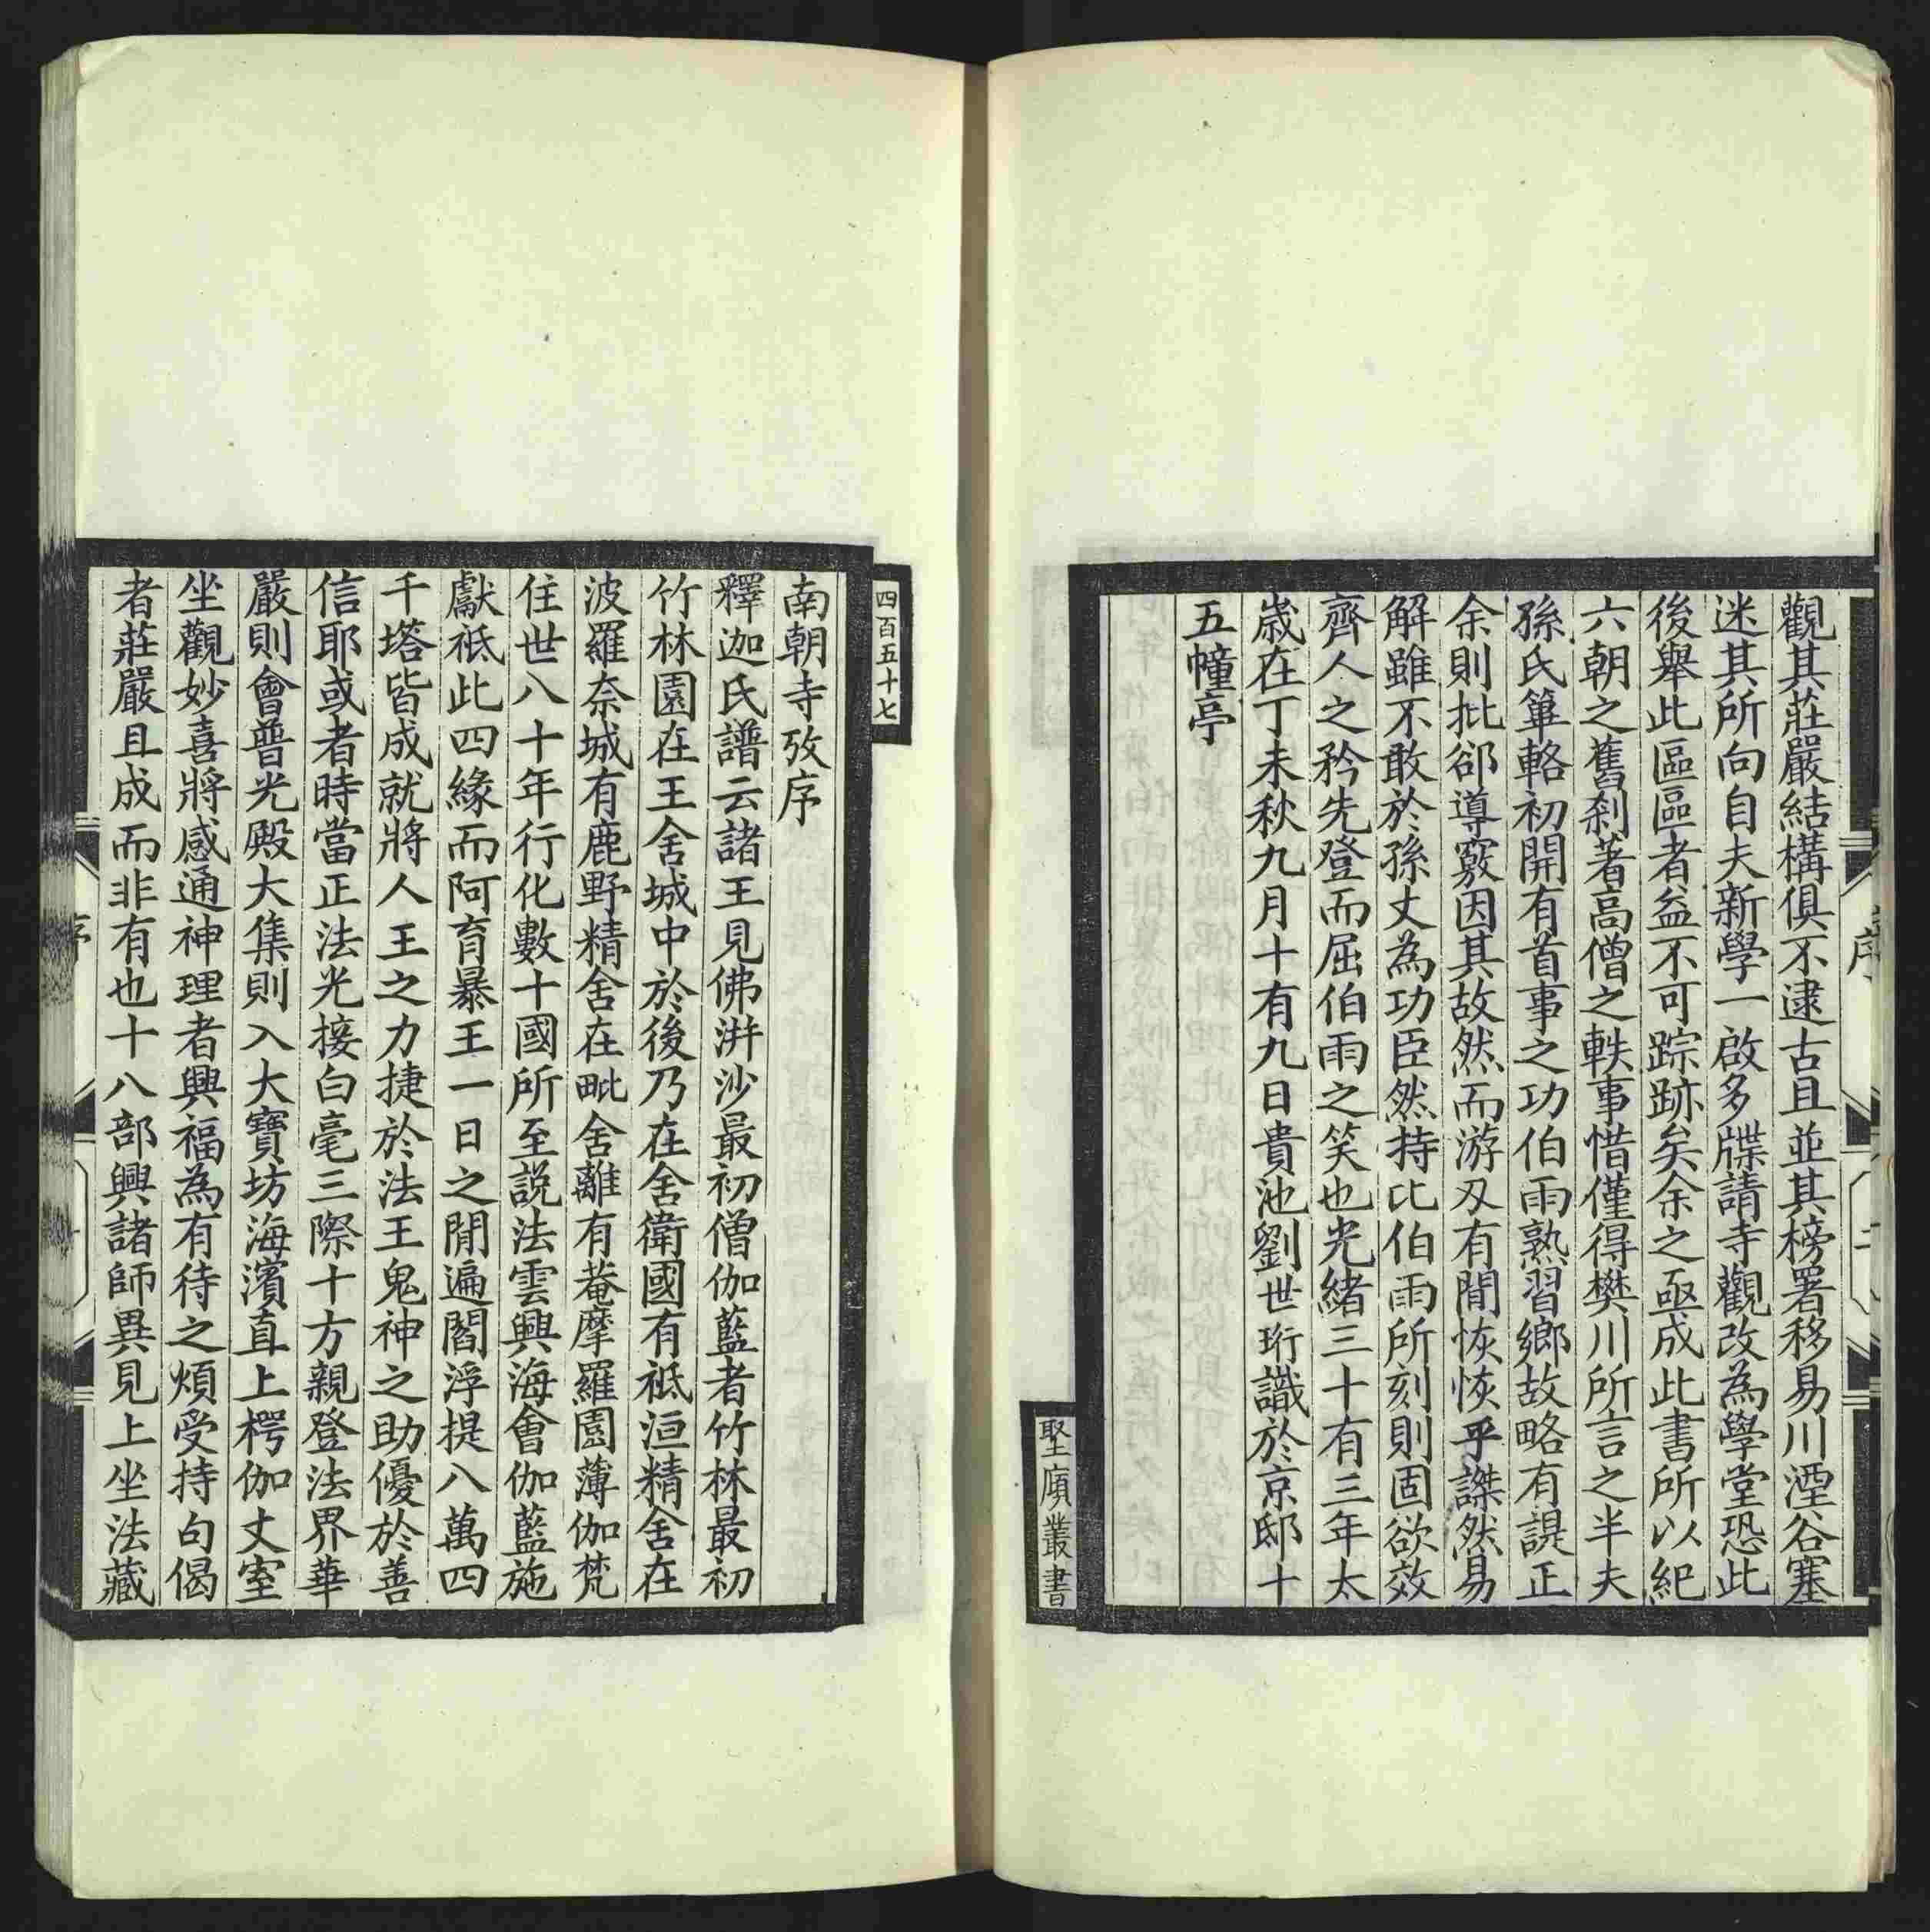 觀其莊嚴結構俱不逮古且並其榜署移易川湮谷塞
迷其所向自夫新學一啟多牒請寺觀改為學堂恐此
後舉此區區者益不可踪跡矣余之亟成此書所以紀
六朝之舊刹著高僧之軼事惜僅得樊川所言之半夫
孫氏篳輅初開有首事之功伯雨熟習鄉故略有諟正
余則批郤導窾因其故然而游刃有閒恢恢乎謋然易
解雖不敢於孫丈為功臣然持比伯雨所刻則固欲效
齊人之矜先登而屈伯雨之笑也光緒三十有三年太
歲在丁未秋九月十有九日貴池劉世珩識於京邸十
五幢亭
序
二
聖廎叢書
四百五十七
南朝寺攷序
釋迦氏譜云諸王見佛洴沙最初僧伽藍者竹林最初
竹林園在王舍城中於後乃在舍衛國有祇洹精舍在
波羅奈城有鹿野精舍在毗舍離有菴摩羅園薄伽梵
住世八十年行化數十國所至説法雲興海會伽藍施
獻祇此四緣而阿育暴王一日之閒遍閻浮提八萬四
千塔皆成就將人王之力捷於法王鬼神之助優於善
信耶或者時當正法光接白毫三際十方親登法界華
嚴則會普光殿大集則入大寶坊海濱直上楞伽丈室
坐觀妙喜將感通神理者興福為有待之煩受持句偈
者莊嚴且成而非有也十八部興諸師異見上坐法藏
序